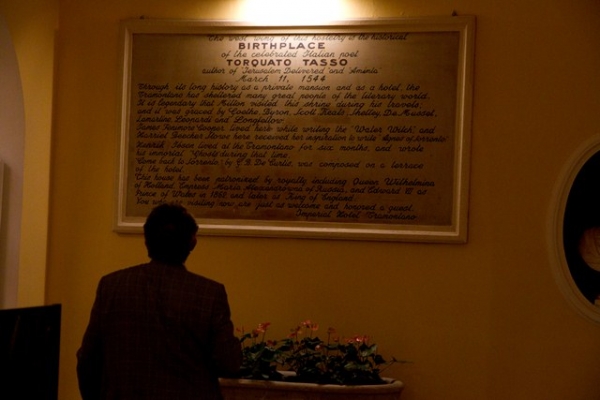 The west wing of this hostelry is the historical
BIRTHPLACE
of the celebrated Italian poet
TORQUATO TASSO
author of Jerusalem Delivered and Aminta
March 11, 1544
Through its long history as a private mansion and as a hotel, the
Tramontano has sheltered many great people of the literary world.
It is legendary that Milton visited this shrine during his travels,
and it was graced by Goethe, Byron, Scott, Keats, Shelley, De Musset,
Lamartine, Leopardi and Longfellow.
James Fenimore Cooper lived here while writing the "Water Witch," and
Harriet Beecher Stowe here received her inspiration to write "Agnes of Sorrento."
Henrik Ibsen lived at the Tramontano for six months, and wrote
his immortal "Ghosts" during that time.
"Come back to Sorrento" by G.B. De Curtis, was composed on a terrace
of the hotel.
This house has been patronized by royalty including Queen Wilhelmina
of Holland, Empress Maria Alexandrovna of Russia, and Edward VII as
Prince of Wales in 1862 and later as King of England.
You who are visiting now are just as welcome and honored a guest.
Imperial Hotel Tramontano